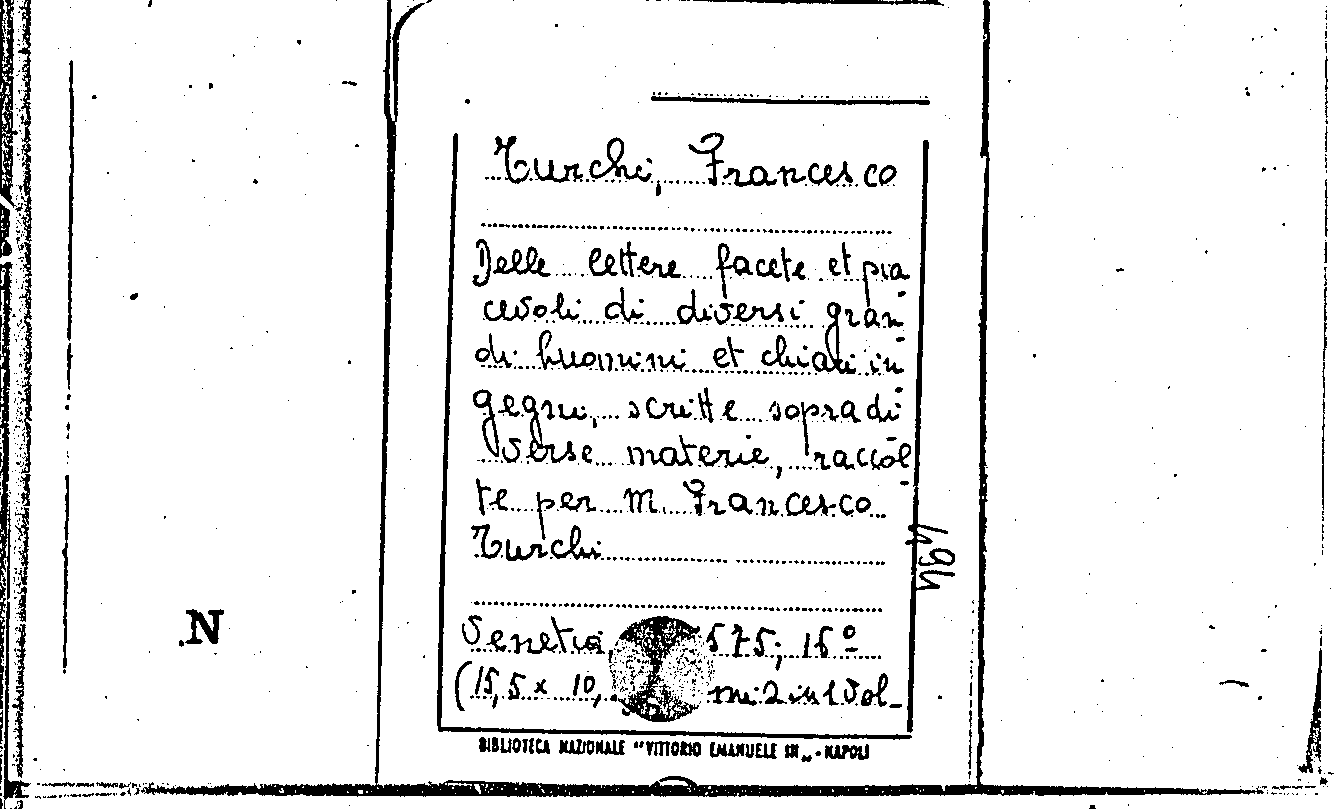 Turchi, Francesco
Delle lettere facete et pia
cevoli di diversi gran
di huomini et chiari in
gegni, scritte sopra di
verse materie, raccol
te per M. Francesco
Turchi
494
Venetia, 575; 16º
(15,5 x 10, mi 2 in 1 vol_
.N
BIBLIOTECA NAZIONALE "VITTORIO EMANUELE III„ - NAPOLI